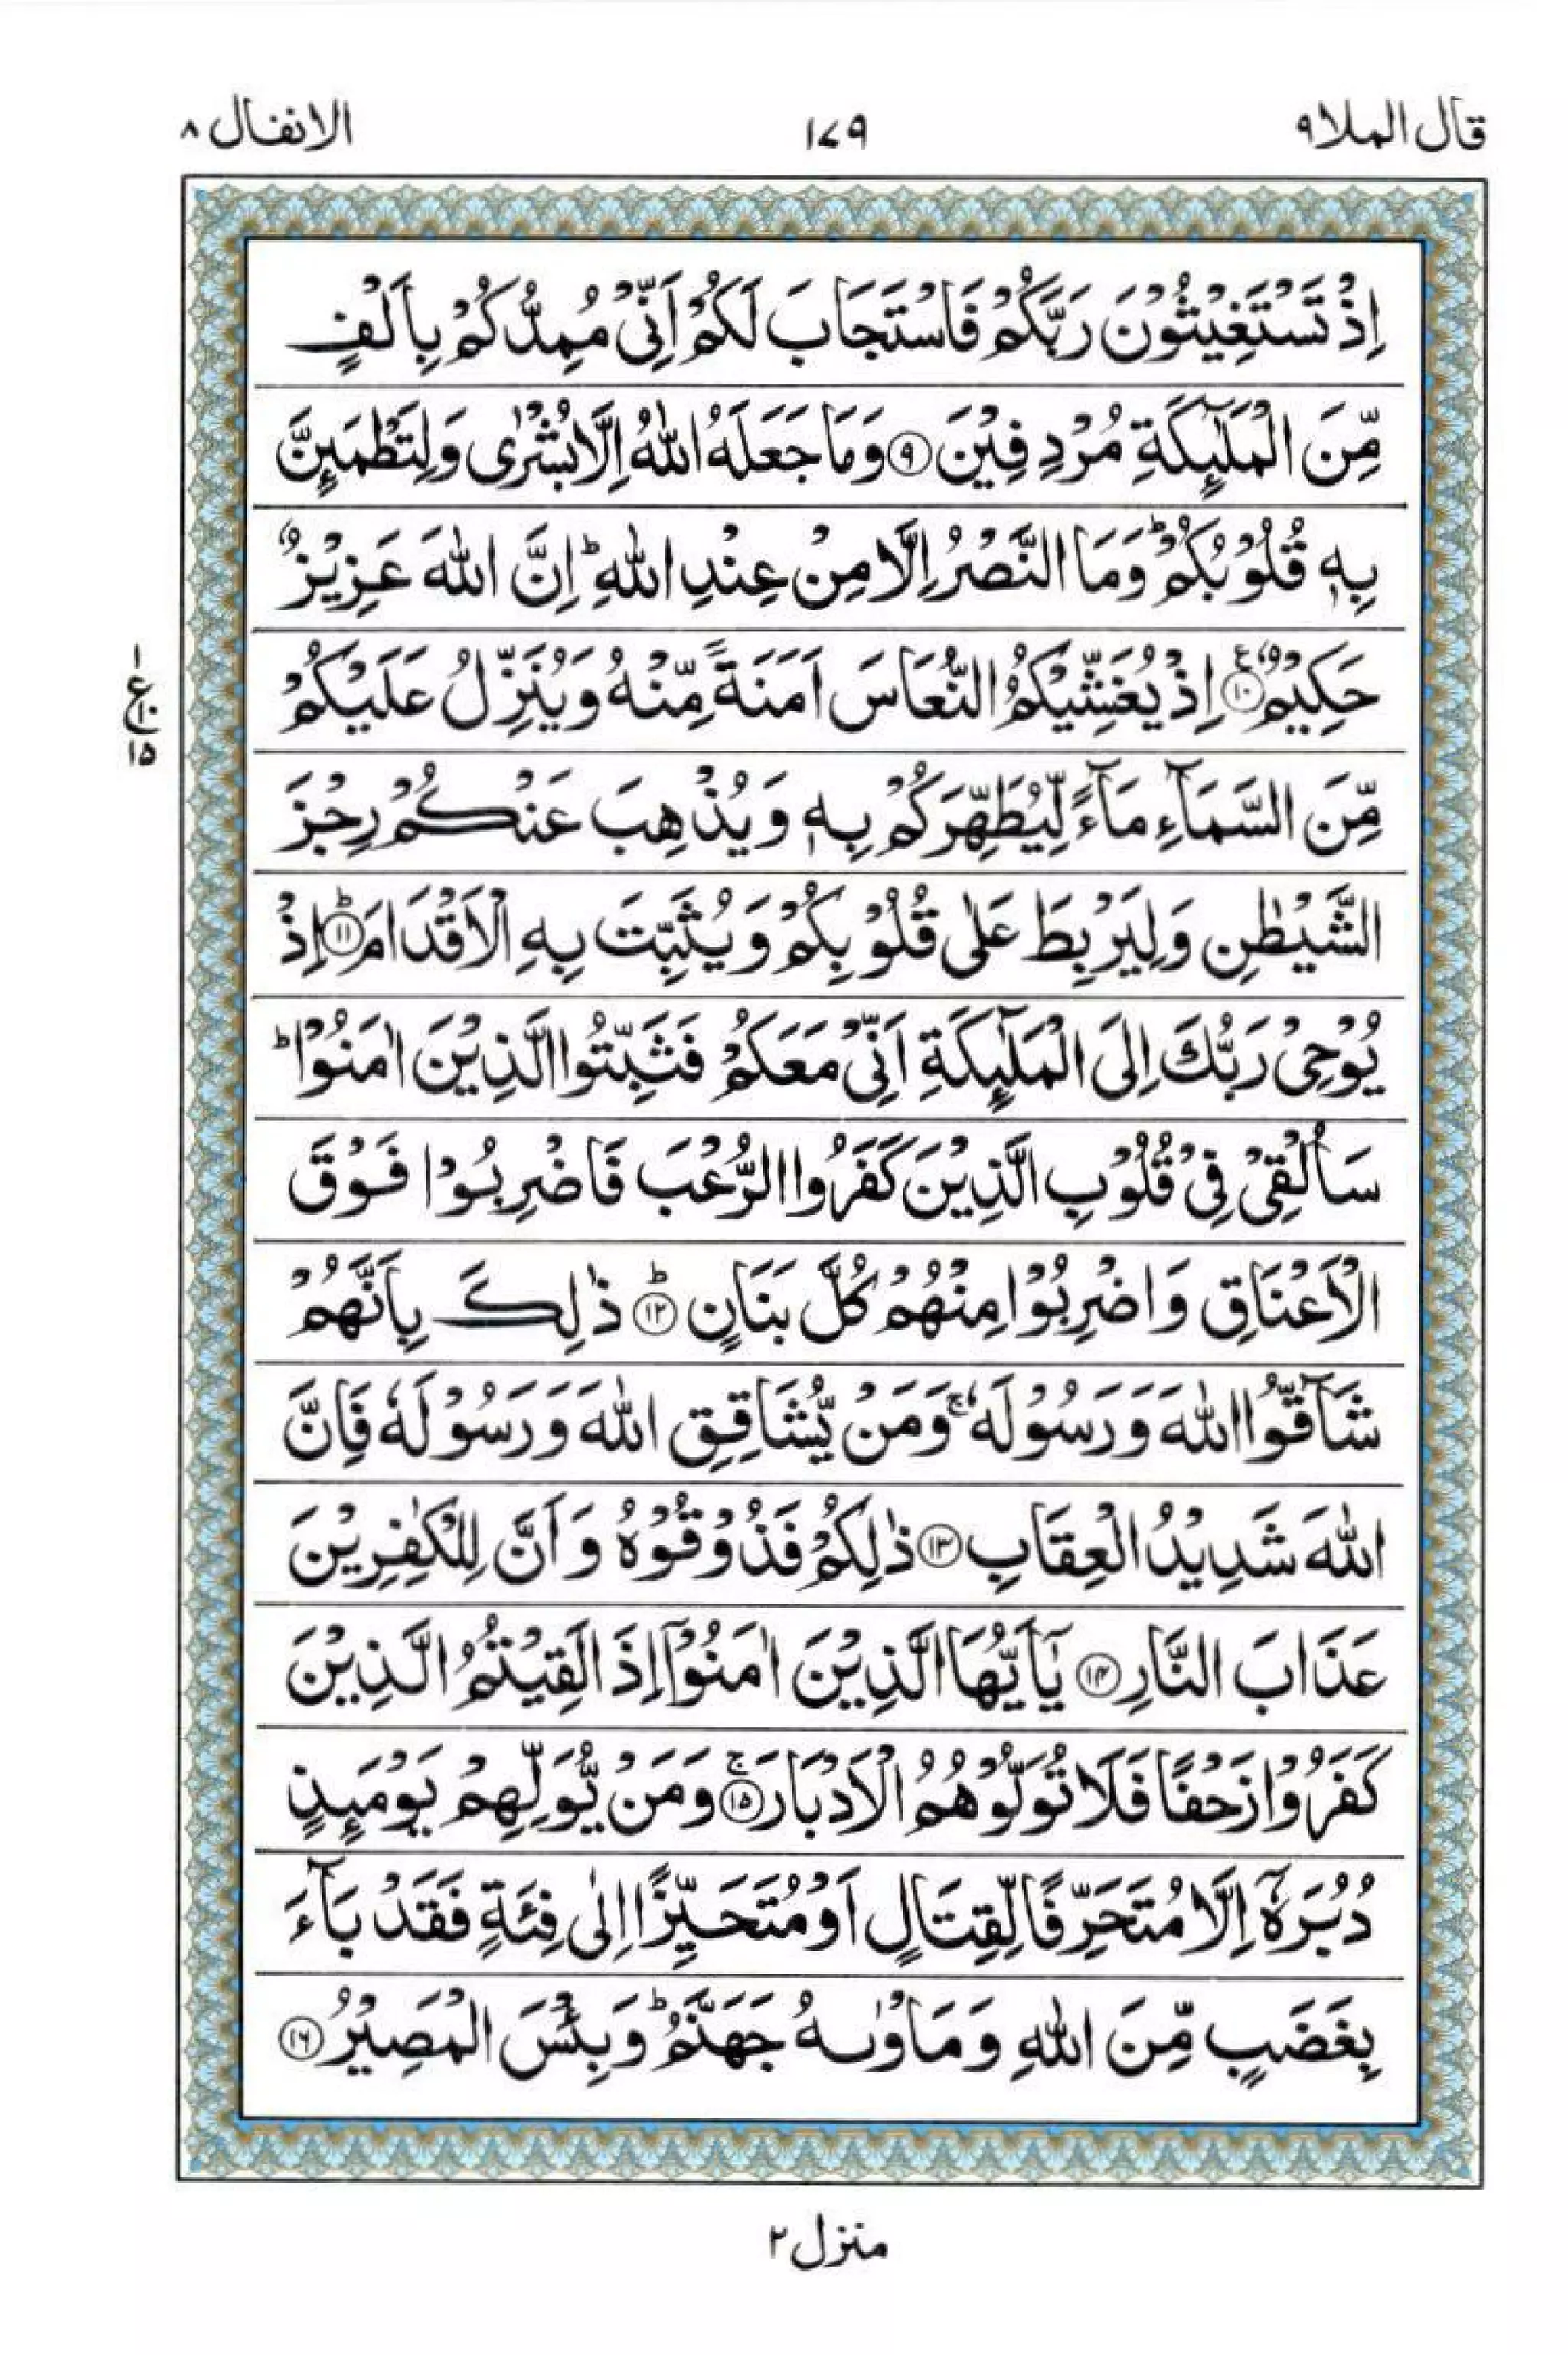 قال الملا ٩
١٧٩
الانفال ٨
اِذْ تَسْتَغِيْثُوْنَ رَبَّكُمْ فَاسْتَجَابَ لَكُمْ اَنِّىْ مُمِدُّكُمْ بِاَلْفٍ
مِّنَ الْمَلٰٓئِكَةِ مُرْدِفِيْنَ ٩ وَمَا جَعَلَهُ اللّٰهُ اِلَّا بُشْرٰى وَلِتَطْمَئِنَّ
بِهٖ قُلُوْبُكُمْ ؕ وَمَا النَّصْرُ اِلَّا مِنْ عِنْدِ اللّٰهِ ؕ اِنَّ اللّٰهَ عَزِيْزٌ
حَكِيْمٌ ١٠ ع اِذْ يُغَشِّيْكُمُ النُّعَاسَ اَمَنَةً مِّنْهُ وَيُنَزِّلُ عَلَيْكُمْ
١
ع
١٠
١٥
مِّنَ السَّمَآءِ مَآءً لِّيُطَهِّرَكُمْ بِهٖ وَيُذْهِبَ عَنْكُمْ رِجْزَ
الشَّيْطٰنِ وَلِيَرْبِطَ عَلٰى قُلُوْبِكُمْ وَيُثَبِّتَ بِهِ الْاَقْدَامَ ؕ ١١ اِذْ
يُوْحِىْ رَبُّكَ اِلَى الْمَلٰٓئِكَةِ اَنِّىْ مَعَكُمْ فَثَبِّتُوا الَّذِيْنَ اٰمَنُوْا ؕ
سَاُلْقِىْ فِىْ قُلُوْبِ الَّذِيْنَ كَفَرُوا الرُّعْبَ فَاضْرِبُوْا فَوْقَ
الْاَعْنَاقِ وَاضْرِبُوْا مِنْهُمْ كُلَّ بَنَانٍ ؕ ١٢ ذٰلِكَ بِاَنَّهُمْ
شَآقُّوا اللّٰهَ وَرَسُوْلَهٗ ۚ وَمَنْ يُّشَاقِقِ اللّٰهَ وَرَسُوْلَهٗ فَاِنَّ
اللّٰهَ شَدِيْدُ الْعِقَابِ ١٣ ذٰلِكُمْ فَذُوْقُوْهُ وَاَنَّ لِلْكٰفِرِيْنَ
عَذَابَ النَّارِ ١٤ يٰۤاَيُّهَا الَّذِيْنَ اٰمَنُوْۤا اِذَا لَقِيْتُمُ الَّذِيْنَ
كَفَرُوْا زَحْفًا فَلَا تُوَلُّوْهُمُ الْاَدْبَارَ ۚ ١٥ وَمَنْ يُّوَلِّهِمْ يَوْمَئِذٍ
دُبُرَهٗۤ اِلَّا مُتَحَرِّفًا لِّقِتَالٍ اَوْ مُتَحَيِّزًا اِلٰى فِئَةٍ فَقَدْ بَآءَ
بِغَضَبٍ مِّنَ اللّٰهِ وَمَاْوٰىهُ جَهَنَّمُ ؕ وَبِئْسَ الْمَصِيْرُ ١٦
منزل ٢